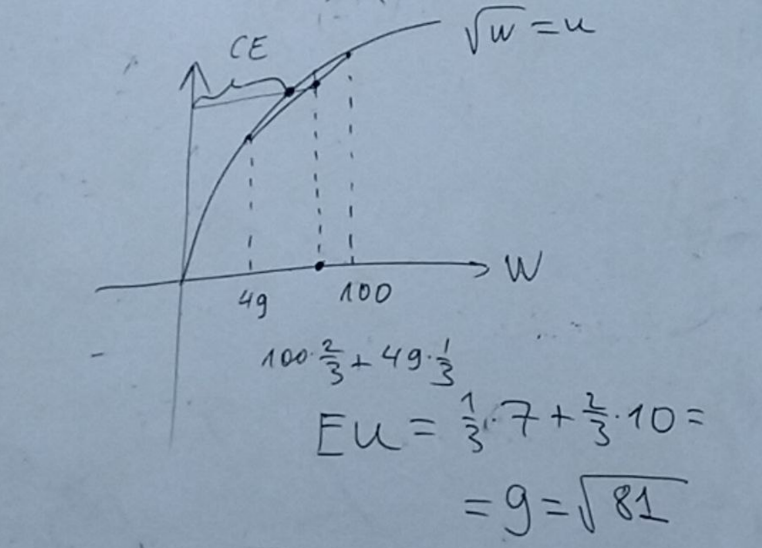 CE
√w = u
W
49
100
100·2/3 + 49·1/3
Eu = 1/3·7 + 2/3·10 =
= 9 = √81